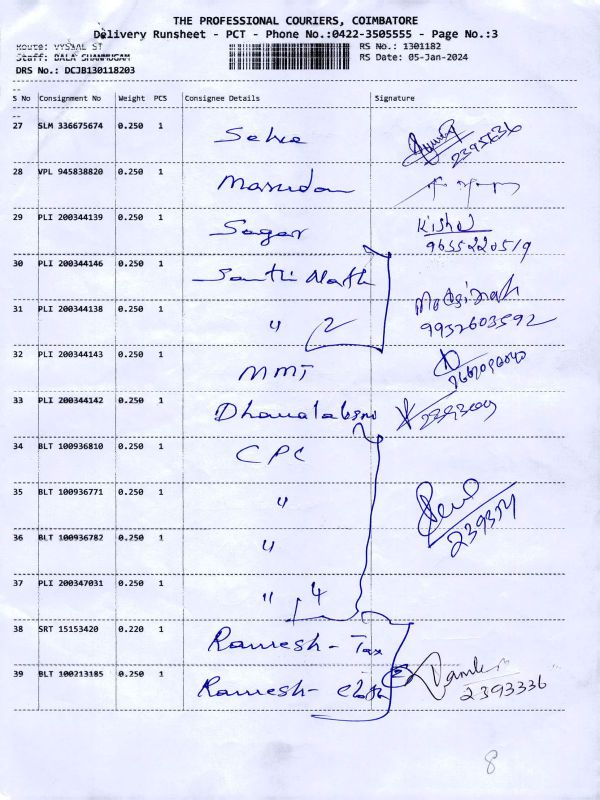 THE PROFESSIONAL COURIERS, COIMBATORE
Delivery Runsheet - PCT - Phone No.:0422-3505555 - Page No.:3
Route: VYSIAL ST
RS No.: 1301182
Staff: BALA SHANMUGAM
RS Date: 05-Jan-2024
DRS No.: DCJB130118203
S No Consignment No Weight PCS Consignee Details Signature
27 SLM 336675674 0.250 1
28 VPL 945838820 0.250 1
29 PLI 200344139 0.250 1 Sagar Kishor
9655220519
30 PLI 200344146 0.250 1 Santhi Nath
31 PLI 200344138 0.250 1 " 2
9932603592
32 PLI 200344143 0.250 1 MMT
33 PLI 200344142 0.250 1
34 BLT 100936810 0.250 1 CPC
35 BLT 100936771 0.250 1 "
36 BLT 100936782 0.250 1 "
37 PLI 200347031 0.250 1 " 4
38 SRT 15153420 0.220 1 Ramesh - Tax
39 BLT 100213185 0.250 1 Ramesh - 2
2393336
8